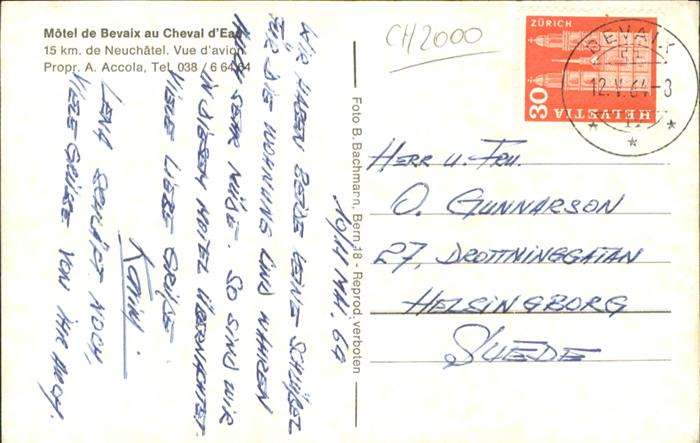 Môtel de Bevaix au Cheval d'Eau
15 km. de Neuchâtel. Vue d'avion
Propr. A. Accola, Tel. 038 / 6 64 64
CH2000
ZÜRICH
30
HELVETIA
BEVAIX
12.V.64-8
Foto B. Bachmann, Bern 18 - Reprod. verboten
10/11 MAI. 64
WIR HABEN BEIDE KEINE SCHLÜSSEL
FÜR DIE WOHNUNG UND WAREN
SEHR MÜDE. SO SIND WIR
IN DIESEM MOTEL ÜBERNACHTET.
VIELE LIEBE GRÜSSE
KARIN.
LENA SCHLÄFT NOCH,
VIELE GRÜSSE VON IHR AUCH.
HERR U. FRU.
O. GUNNARSON
27, DROTTNINGGATAN
HELSINGBORG
SUEDE